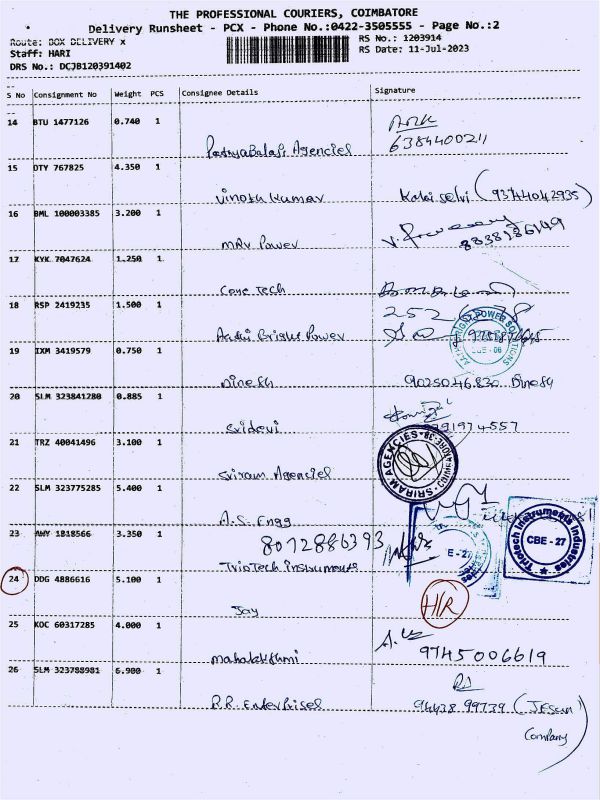 THE PROFESSIONAL COURIERS, COIMBATORE
Delivery Runsheet - PCX - Phone No.:0422-3505555 - Page No.:2
Route: BOX DELIVERY x
RS No.: 1203914
Staff: HARI
RS Date: 11-Jul-2023
DRS No.: DCJB120391402
S No Consignment No Weight PCS Consignee Details Signature
14 BTU 1477126 0.740 1
6384400211
Agencies
15 DTY 767825 4.350 1
Vinoth Kumar Kalai selvi (93744042935)
16 BML 100003385 3.200 1
MAV Power 8838186149
17 KYK 7047624 1.250 1
Core Tech
18 RSP 2419235 1.500 1
Aathi Bright Power
19 IXM 3419579 0.750 1
CBE-06
Dinesh 9025046830 Dinesh
20 SLM 323841280 0.885 1
Sridevi
21 TRZ 40041496 3.100 1
Sriram Agencies
SRIRAM AGENCIES
22 SLM 323775285 5.400 1
A.S. Engg
23 AWY 1818566 3.350 1
8072886393
E-27
Triotech Instruments Industries
CBE - 27
TrioTech Instruments
24 DDG 4886616 5.100 1
H/R
Jay
25 KOC 60317285 4.000 1
Mahalakshmi 9745006619
26 SLM 323788981 6.900 1
R.R. Enterprises 94438 99739 (
Company)